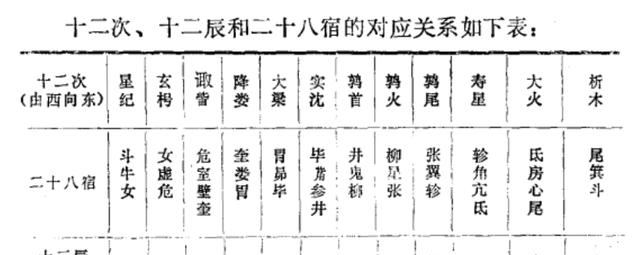 十二次、十二辰和二十八宿的对应关系如下表：
十二次（由西向东） 星纪 玄枵 诹訾 降娄 大梁 实沈 鹑首 鹑火 鹑尾 寿星 大火 析木
二十八宿 斗牛女 女虚危 危室壁奎 奎娄胃 胃昴毕 毕觜参井 井鬼柳 柳星张 张翼轸 轸角亢氐 氐房心尾 尾箕斗